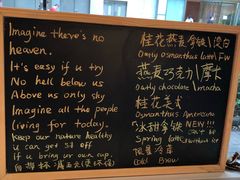 Imagine there's no
heaven.
It's easy if u try
No hell below us
Above us only sky
Imagine all the people
living for today.
Keep our nature healthy
u can get 5¥ off
If u bring ur own cup.
自带杯减五元(爱环保)
桂花燕麦拿铁/澳白
Oatly osmanthus latte/FW
燕麦巧克力/摩卡
Oatly chocolate/mocha
桂花美式
Osmanthus Americano
冰甜拿铁 NEW!!!
Spring latte
现量冷萃
Cold Brew